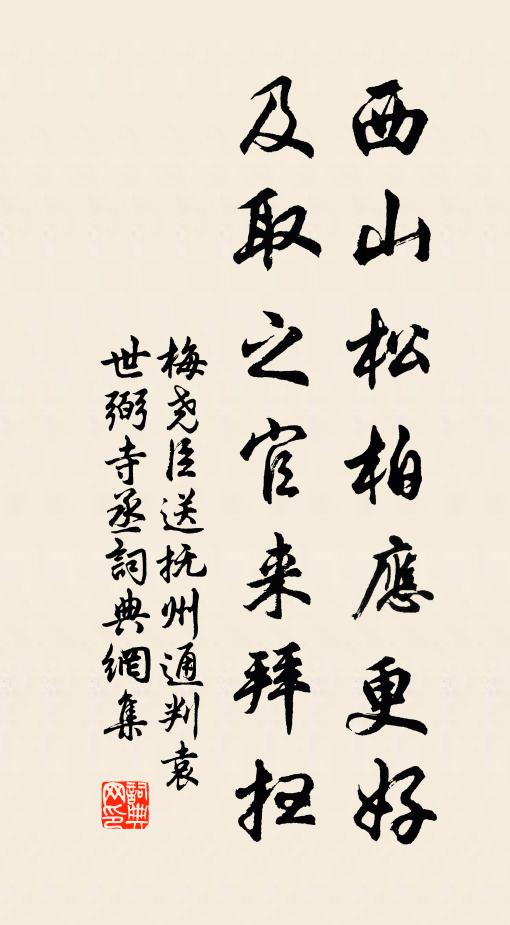 西山松柏應更好
及取之官来拜扫
梅尧臣送抚州通判袁
世弼寺丞詞典網集
詞典
网印